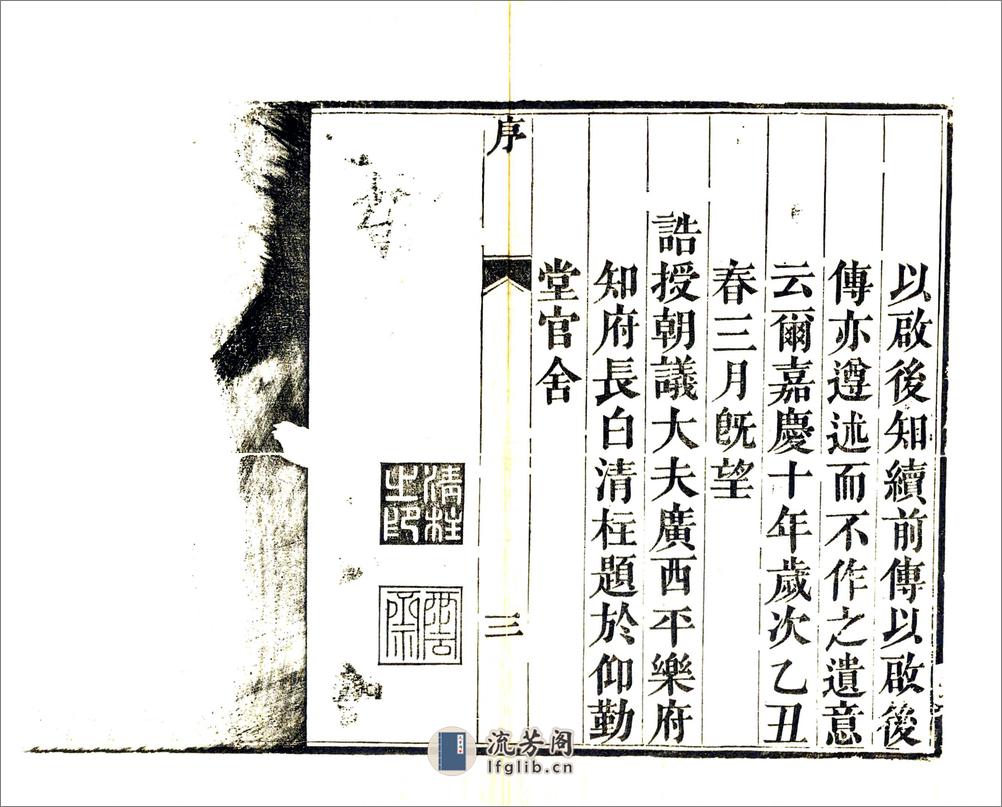 以啟後知續前傳以啟後
傳亦遵述而不作之遺意
云爾嘉慶十年歲次乙丑
春三月旣望
誥授朝議大夫廣西平樂府
知府長白清柱題於仰勤
堂官舍
序
三
清柱
之印
流芳阁
lfglib.cn